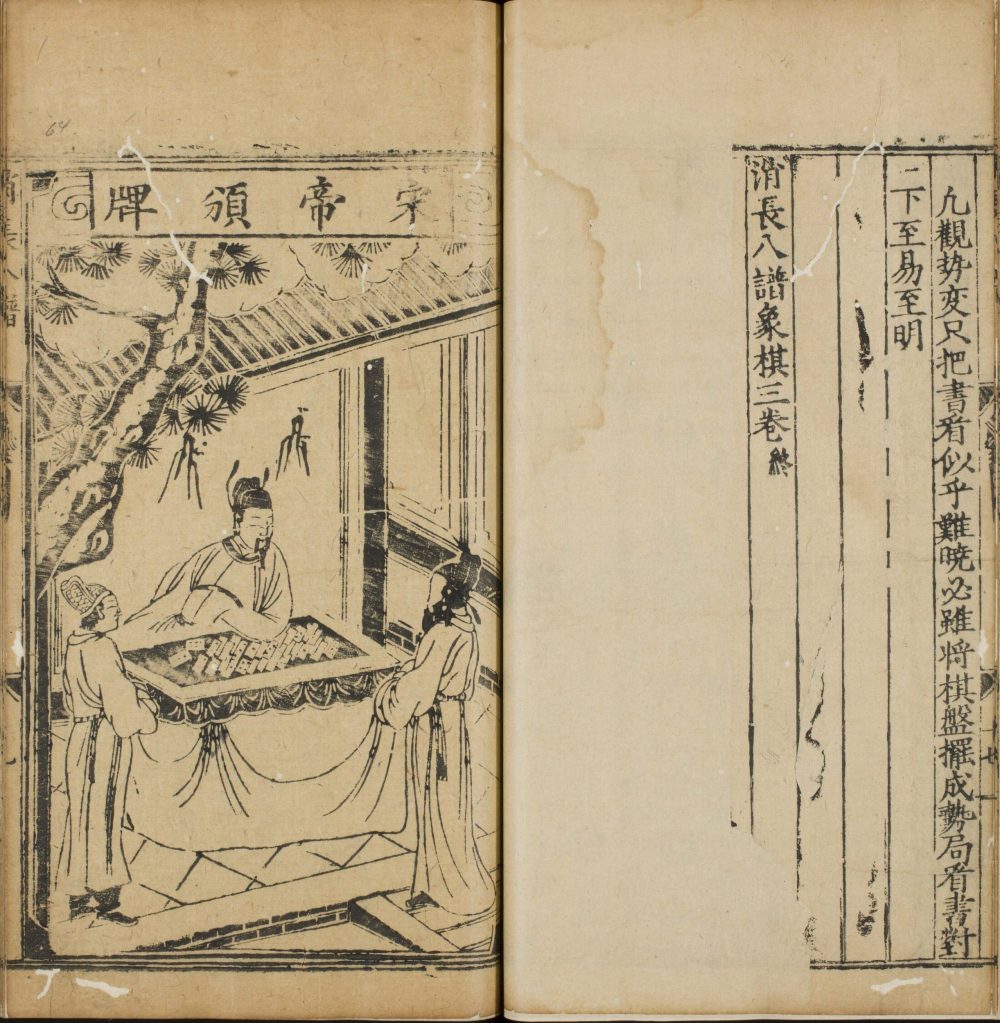 凢觀势变只把書看似乎難曉必雖将棋盤擺成勢局看書對
下至易至明
消長八譜象棋三巻終
宋帝頒牌
64